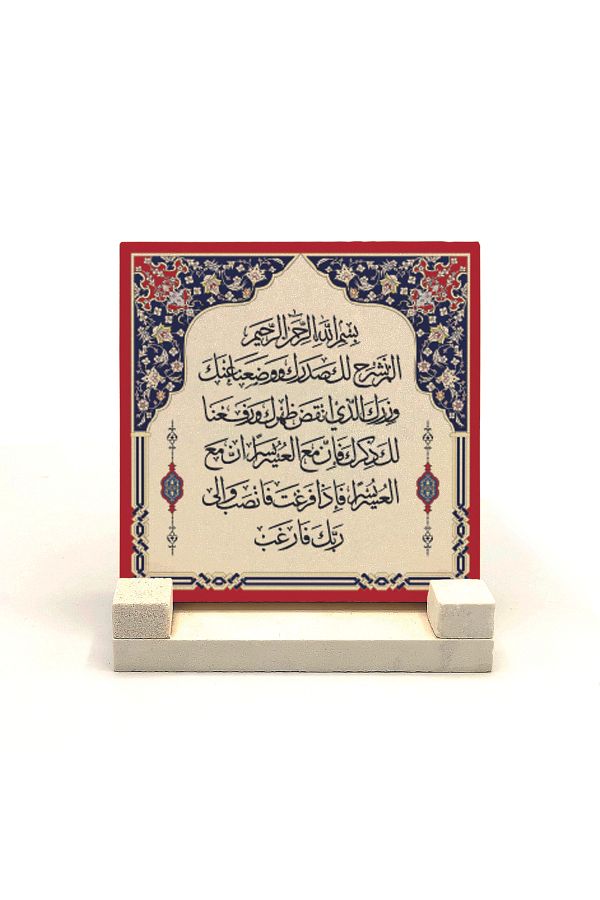 بِسْمِ اللَّهِ الرَّحْمَنِ الرَّحِيمِ
الم نشرح لك صدرك ووضعنا عنك
وزرك الذي انقض ظهرك ورفعنا
لك ذكرك فإن مع العسر يسرا ان مع
العسر يسرا فإذا فرغت فانصب والى
ربك فارغب